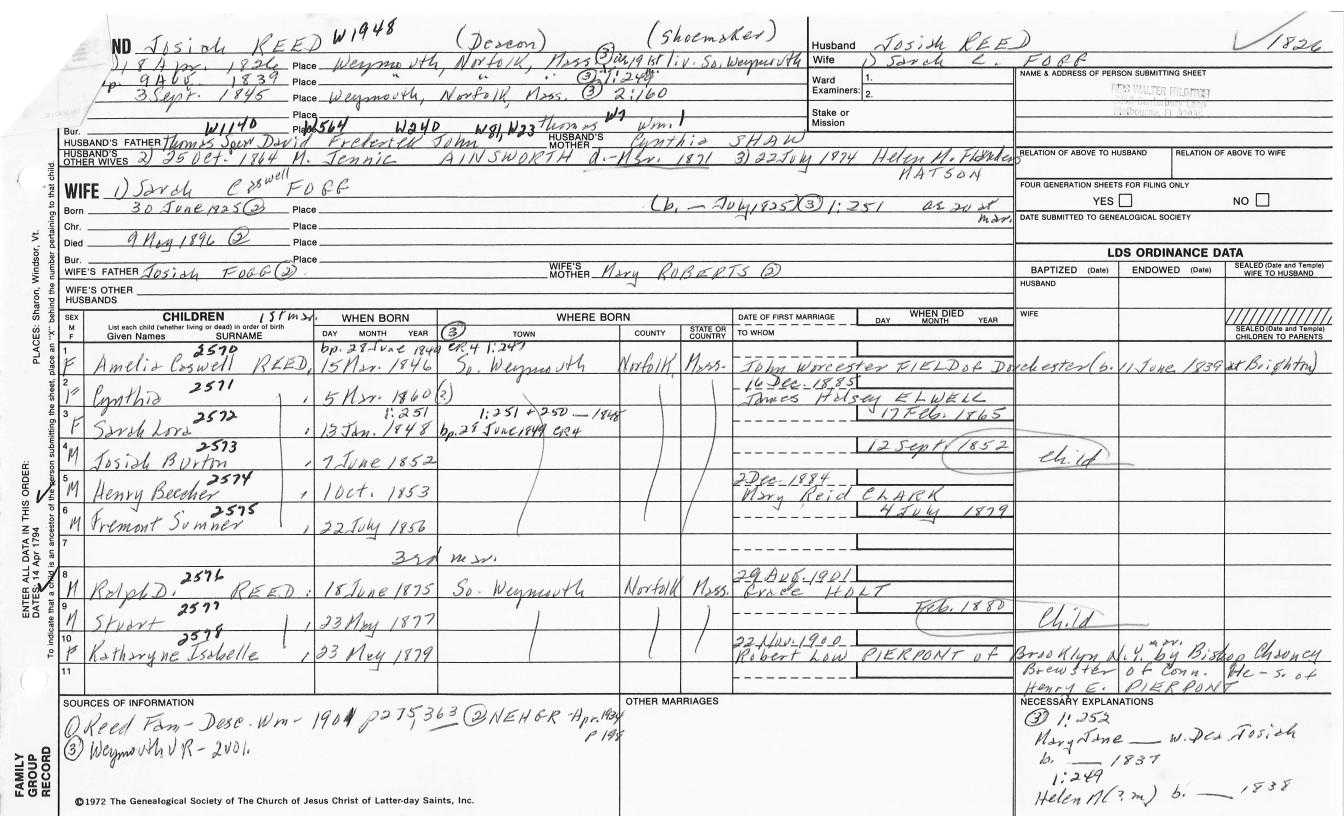 ND Josiah REED W1948 (Deacon) (Shoemaker)
18 Apr. 1826 Place Weymouth, Norfolk, Mass ③ liv. So. Weymouth
9 Aug. 1839 Place " " " ③ 1:249
3 Sept. 1845 Place Weymouth, Norfolk, Mass. ③ 2:160
Place
Bur. W1140 Place W564 W240 W81, W23 Thomas W7 Wm. 1
HUSBAND'S FATHER Thomas Spear David Frederick John HUSBAND'S MOTHER Cynthia SHAW
HUSBAND'S OTHER WIVES 2) 25 Oct. 1864 M. Jennie AINSWORTH d. - Mar. 1871 3) 22 July 1874 Helen M. Flanders
MATSON
Husband Josiah REED 1826
Wife 1) Sarah C. FOGG
Ward Examiners: 1.
2.
Stake or Mission
NAME & ADDRESS OF PERSON SUBMITTING SHEET
RELATION OF ABOVE TO HUSBAND RELATION OF ABOVE TO WIFE
FOUR GENERATION SHEETS FOR FILING ONLY
YES NO
DATE SUBMITTED TO GENEALOGICAL SOCIETY
WIFE 1) Sarah Coswell FOGG
Born 30 June 1825 ② Place (b. - July 1825) ③ 1:251 as 20 at mar.
Chr. Place
Died 9 May 1896 ② Place
Bur. Place
WIFE'S FATHER Josiah FOGG ② WIFE'S MOTHER Mary ROBERTS ②
WIFE'S OTHER HUSBANDS
LDS ORDINANCE DATA
BAPTIZED (Date) ENDOWED (Date) SEALED (Date and Temple) WIFE TO HUSBAND
HUSBAND
WIFE
SEALED (Date and Temple) CHILDREN TO PARENTS
SEX M F CHILDREN 1st mar. WHEN BORN WHERE BORN DATE OF FIRST MARRIAGE WHEN DIED
List each child (whether living or dead) in order of birth
Given Names SURNAME DAY MONTH YEAR ③ TOWN COUNTY STATE OR COUNTRY TO WHOM DAY MONTH YEAR
1 2570 bp. 28 June 1849 CR4 1:247
F Amelia Coswell REED, 15 Mar. 1846 So. Weymouth Norfolk, Mass. John Worcester FIELD of Dorchester (b. 11 June 1839 at Brighton)
2 2571 16 Dec. 1885
F Cynthia , 5 Mar. 1860 ② James Halsey ELWELL
3 2572 1:251 1:251 + 250 — 1848 17 Feb. 1865
F Sarah Lora , 13 Jan. 1848 bp. 28 June 1849 CR4
4 2573 12 Sept. 1852 Child
M Josiah Burton , 7 June 1852
5 2574 2 Dec. 1884
M Henry Beecher 1 Oct. 1853 Mary Reid CLARK
6 2575 4 July 1879
M Fremont Sumner , 22 July 1856
7
3rd mar.
8 2576 29 Aug. 1901
M Ralph D. REED, 18 June 1875 So. Weymouth Norfolk Mass. Grace HOLT
9 2577 Feb. 1880 Child
M Stuart , 23 May 1877
10 2578 22 Nov. 1900
F Katharyne Isabelle , 23 May 1879 Robert Low PIERPONT of Brooklyn N.Y. mar. by Bishop Chauncy
11 Brewster of Conn. He - s. of
Henry E. PIERPONT
SOURCES OF INFORMATION
① Reed Fam - Desc. Wm - 1901 p 275, 363 ② NEHGR - Apr. 1934
p 198
③ Weymouth VR - 2 vol.
OTHER MARRIAGES
NECESSARY EXPLANATIONS
③ 1:252
Mary Jane — w. Dea Josiah
b. — 1837
1:249
Helen M (?m) b. — 1838
©1972 The Genealogical Society of The Church of Jesus Christ of Latter-day Saints, Inc.
PLACES: Sharon, Windsor, Vt.
ENTER ALL DATA IN THIS ORDER:
DATES 14 Apr 1794
To indicate that a child is an ancestor of the person submitting the sheet, place an "X" behind the number pertaining to that child.
FAMILY GROUP RECORD